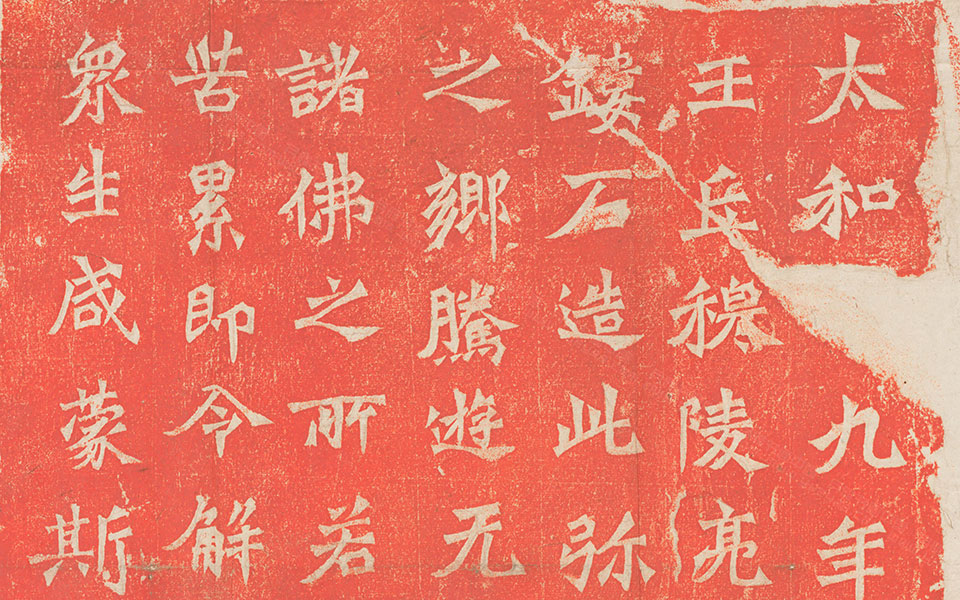 太和九年
王丘穆陵亮
鏤石造此弥
之鄉騰遊无
諸佛之所若
苦累即令解
衆生咸蒙斯